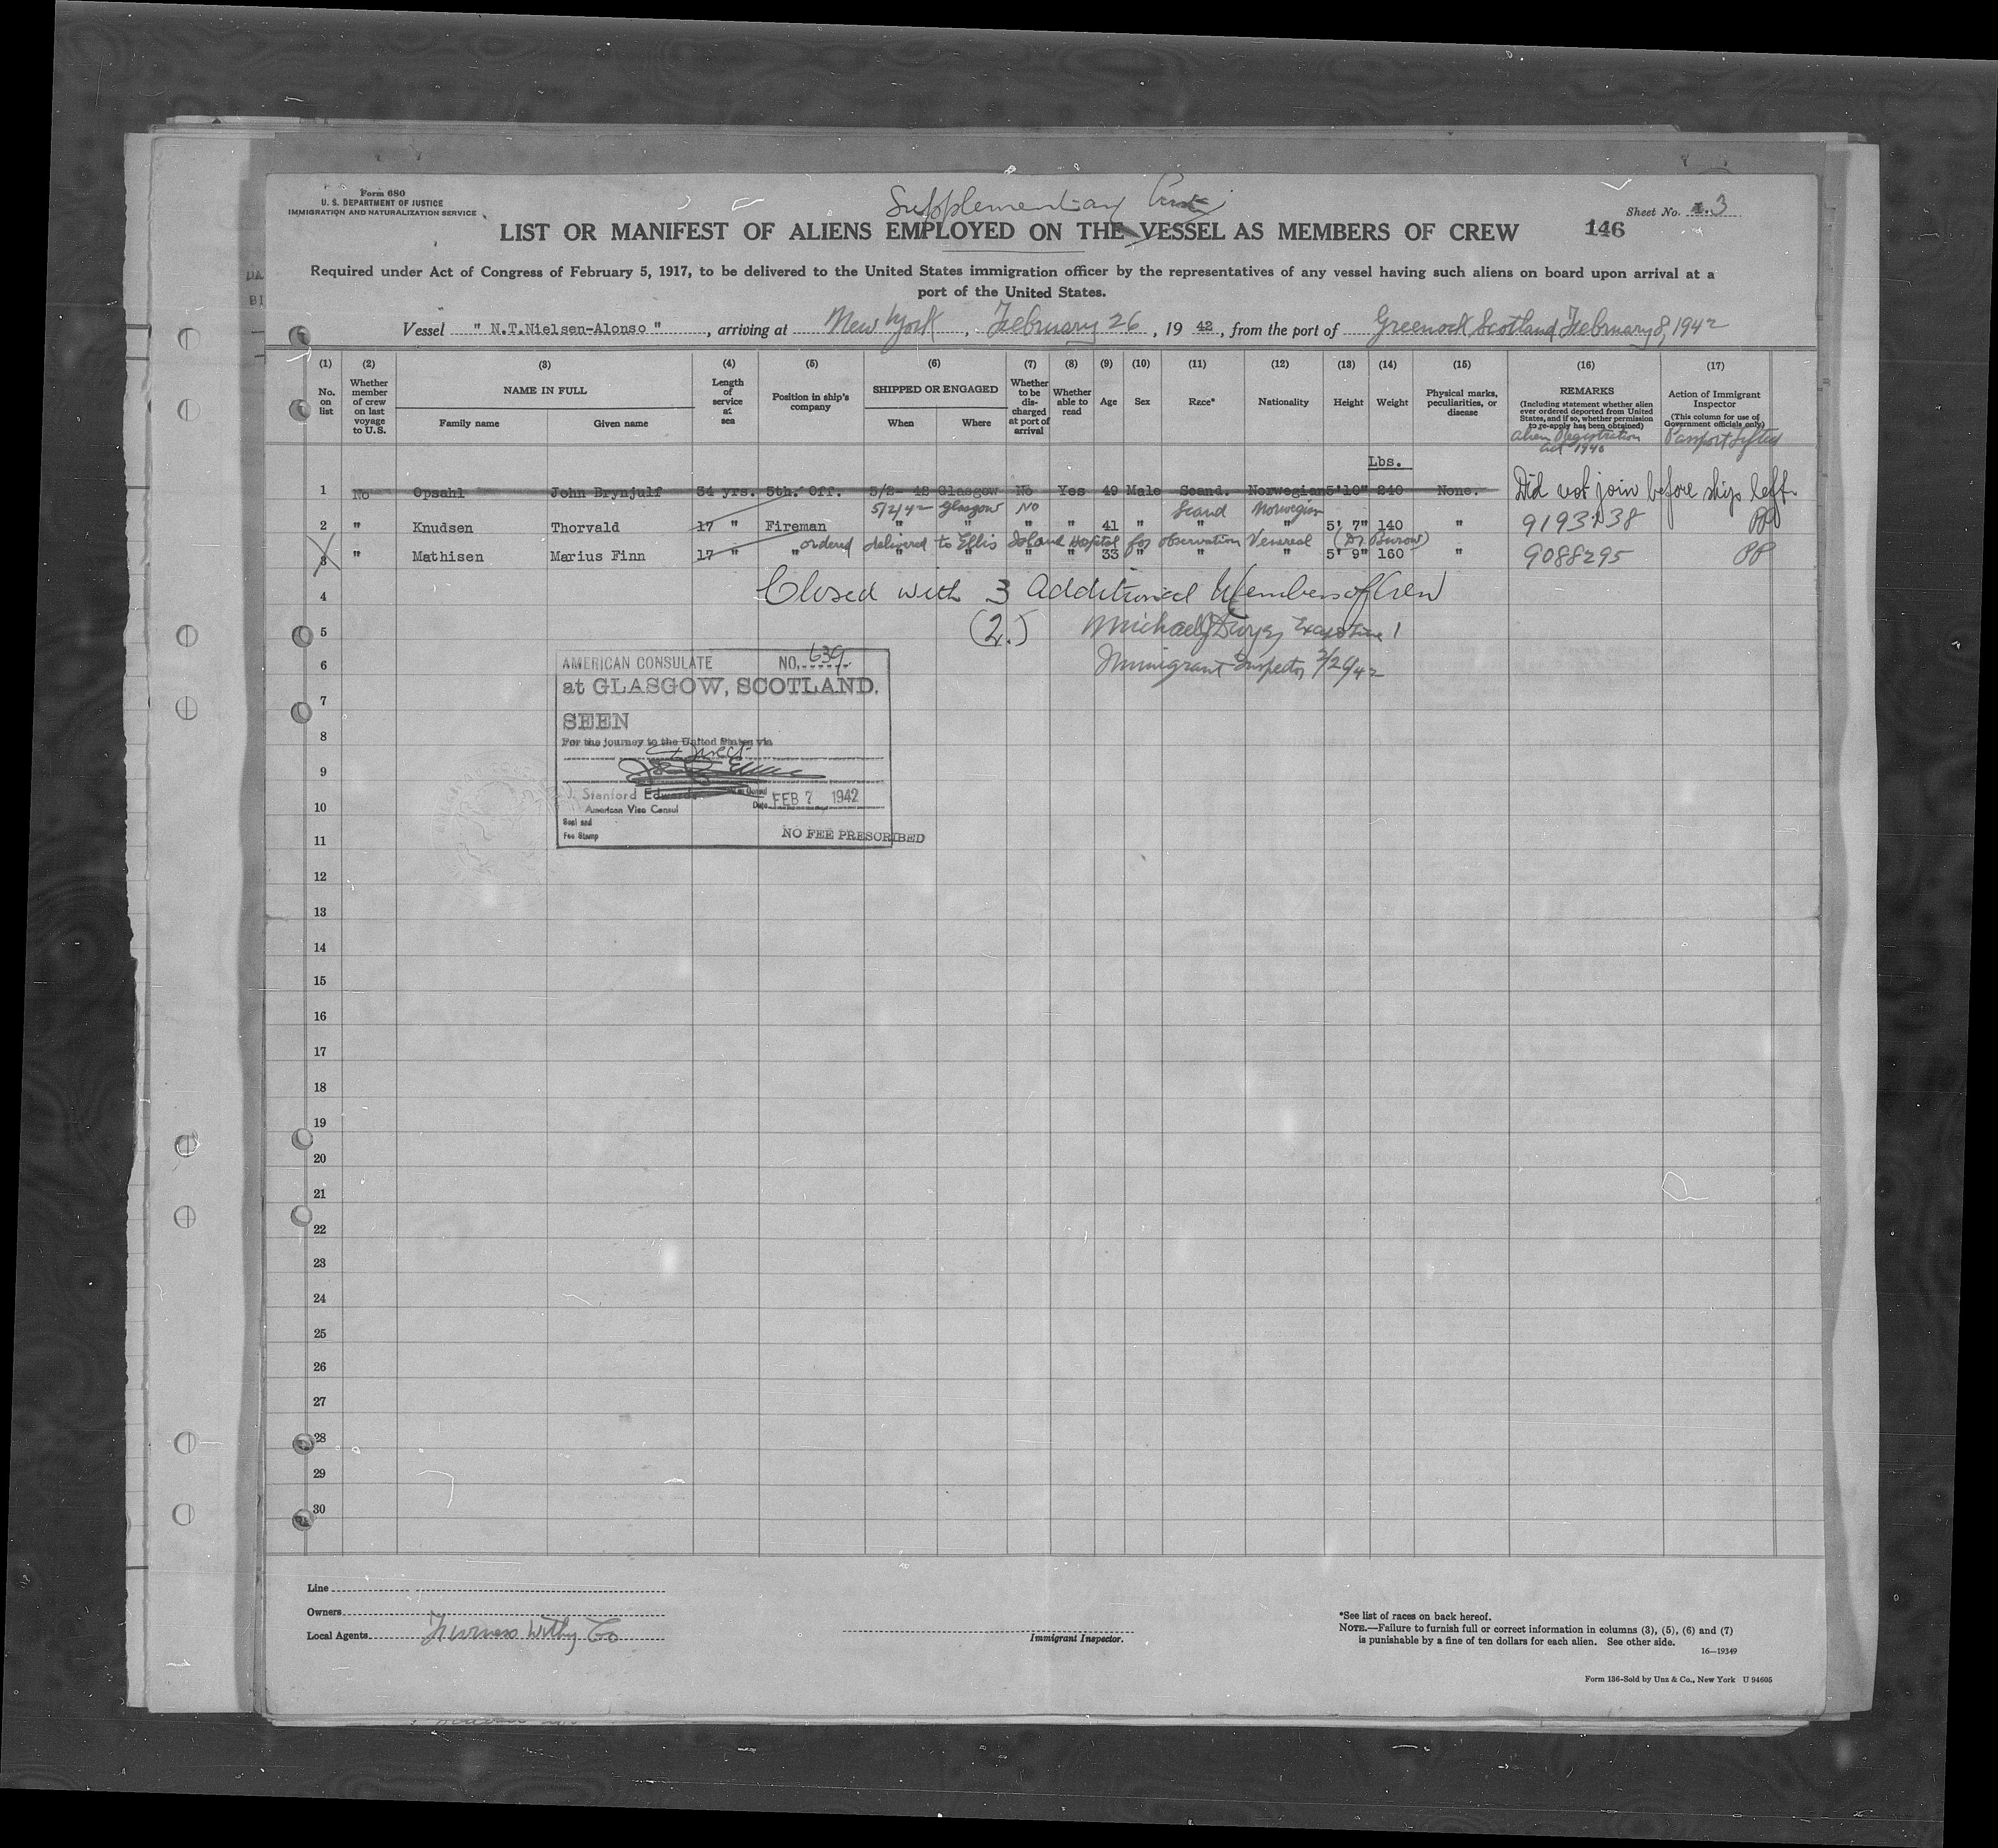 Form 680
U. S. DEPARTMENT OF JUSTICE
IMMIGRATION AND NATURALIZATION SERVICE
Supplementary
Sheet No. 3
LIST OR MANIFEST OF ALIENS EMPLOYED ON THE VESSEL AS MEMBERS OF CREW
146
Required under Act of Congress of February 5, 1917, to be delivered to the United States immigration officer by the representatives of any vessel having such aliens on board upon arrival at a
port of the United States.
Vessel " N.T.Nielsen-Alonso ", arriving at New York, February 26, 19 42, from the port of Greenock Scotland February 8, 1942
(1) No. on list
(2) Whether member of crew on last voyage to U.S.
(3) NAME IN FULL Family name Given name
(4) Length of service at sea
(5) Position in ship's company
(6) SHIPPED OR ENGAGED When Where
(7) Whether to be discharged at port of arrival
(8) Whether able to read
(9) Age
(10) Sex
(11) Race*
(12) Nationality
(13) Height
(14) Weight
(15) Physical marks, peculiarities, or disease
(16) REMARKS (Including statement whether alien ever ordered deported from United States, and if so, whether permission to re-apply has been obtained)
(17) Action of Immigrant Inspector (This column for use of Government officials only)
Alien Registration act 1940
Passport Lifted
Lbs.
1 No Opsahl John Brynjulf 34 yrs. 5th. Off. 5/2- 42 Glasgow No Yes 49 Male Scand. Norwegian 5'10" 240 None. Did not join before ship left.
5/2/42 Glasgow No Scand Norwegian
2 " Knudsen Thorvald 17 " Fireman " " " " 41 " " " 5' 7" 140 " 9193138 PP
ordered delivered to Ellis Island Hospital for observation Venereal (Dr Burow)
3 " Mathisen Marius Finn 17 " " " " " " 33 " " " 5' 9" 160 " 9088295 PP
4 Closed with 3 Additional Members of Crew
5 (2.) Michael J Dwyer
6 Immigrant Inspector 2/26/42
AMERICAN CONSULATE NO. 639
at GLASGOW, SCOTLAND.
7
SEEN
8 For the journey to the United States via
Direct
9
10 Stanford Edwards FEB 7 1942
American Vice Consul Date
Seal and
Fee Stamp
NO FEE PRESCRIBED
11
12
13
14
15
16
17
18
19
20
21
22
23
24
25
26
27
28
29
30
Line
Owners
Local Agents Furness Withy Co
Immigrant Inspector.
*See list of races on back hereof.
NOTE.—Failure to furnish full or correct information in columns (3), (5), (6) and (7)
is punishable by a fine of ten dollars for each alien. See other side.
16—19349
Form 136-Sold by Unz & Co., New York U 94605